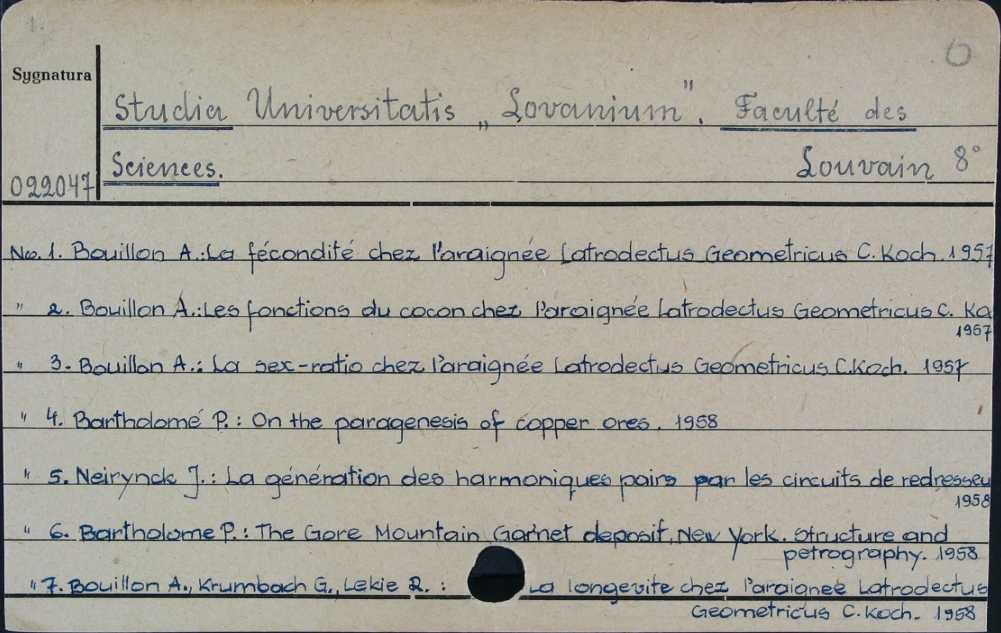 1.
6
Sygnatura
Studia Universitatis „Lovanium". Faculté des
Sciences. Louvain 8°
022047
No. 1. Bouillon A.: La fécondité chez l'araignée Latrodectus Geometricus C. Koch. 1957
" 2. Bouillon A.: Les fonctions du cocon chez l'araignée Latrodectus Geometricus C. Ko
1957
" 3. Bouillon A.: La sex-ratio chez l'araignée Latrodectus Geometricus C. Koch. 1957
" 4. Bartholomé P.: On the paragenesis of copper ores. 1958
" 5. Neirynck J.: La génération des harmoniques pairs par les circuits de redresseu
1958
" 6. Bartholome P.: The Gore Mountain Garnet deposit, New York. Structure and
petrography. 1958
" 7. Bouillon A., Krumbach G., Lekie R. : La longevite chez l'araignee Latrodectus
Geometricus C. Koch. 1958